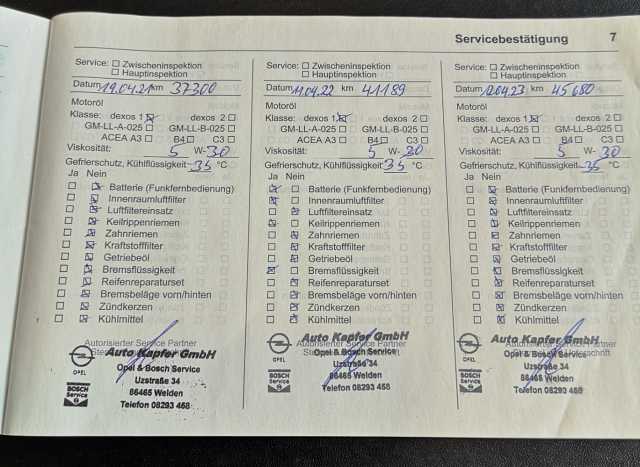 Servicebestätigung 7
Service: Zwischeninspektion
Hauptinspektion
Datum 19.04.21 km 37300
Motoröl
Klasse: dexos 1 dexos 2
GM-LL-A-025 GM-LL-B-025
ACEA A3 B4 C3
Viskosität: 5 W-30
Gefrierschutz, Kühlflüssigkeit -35 °C
Ja Nein
Batterie (Funkfernbedienung)
Innenraumluftfilter
Luftfiltereinsatz
Keilrippenriemen
Zahnriemen
Kraftstofffilter
Getriebeöl
Bremsflüssigkeit
Reifenreparaturset
Bremsbeläge vorn/hinten
Zündkerzen
Kühlmittel
Autorisierter Service Partner
Auto Kapfer GmbH
OPEL
Opel & Bosch Service
Uzstraße 34
BOSCH
Service
86465 Welden
Telefon 08293 468
Service: Zwischeninspektion
Hauptinspektion
Datum 11.04.22 km 41189
Motoröl
Klasse: dexos 1 dexos 2
GM-LL-A-025 GM-LL-B-025
ACEA A3 B4 C3
Viskosität: 5 W-30
Gefrierschutz, Kühlflüssigkeit -35 °C
Ja Nein
Batterie (Funkfernbedienung)
Innenraumluftfilter
Luftfiltereinsatz
Keilrippenriemen
Zahnriemen
Kraftstofffilter
Getriebeöl
Bremsflüssigkeit
Reifenreparaturset
Bremsbeläge vorn/hinten
Zündkerzen
Kühlmittel
Autorisierter Service Partner
Auto Kapfer GmbH
OPEL
Opel & Bosch Service
Uzstraße 34
BOSCH
Service
86465 Welden
Telefon 08293 468
Service: Zwischeninspektion
Hauptinspektion
Datum 12.04.23 km 45680
Motoröl
Klasse: dexos 1 dexos 2
GM-LL-A-025 GM-LL-B-025
ACEA A3 B4 C3
Viskosität: 5 W-30
Gefrierschutz, Kühlflüssigkeit -35 °C
Ja Nein
Batterie (Funkfernbedienung)
Innenraumluftfilter
Luftfiltereinsatz
Keilrippenriemen
Zahnriemen
Kraftstofffilter
Getriebeöl
Bremsflüssigkeit
Reifenreparaturset
Bremsbeläge vorn/hinten
Zündkerzen
Kühlmittel
Auto Kapfer GmbH
OPEL
Opel & Bosch Service
Uzstraße 34
BOSCH
Service
86465 Welden
Telefon 08293 468